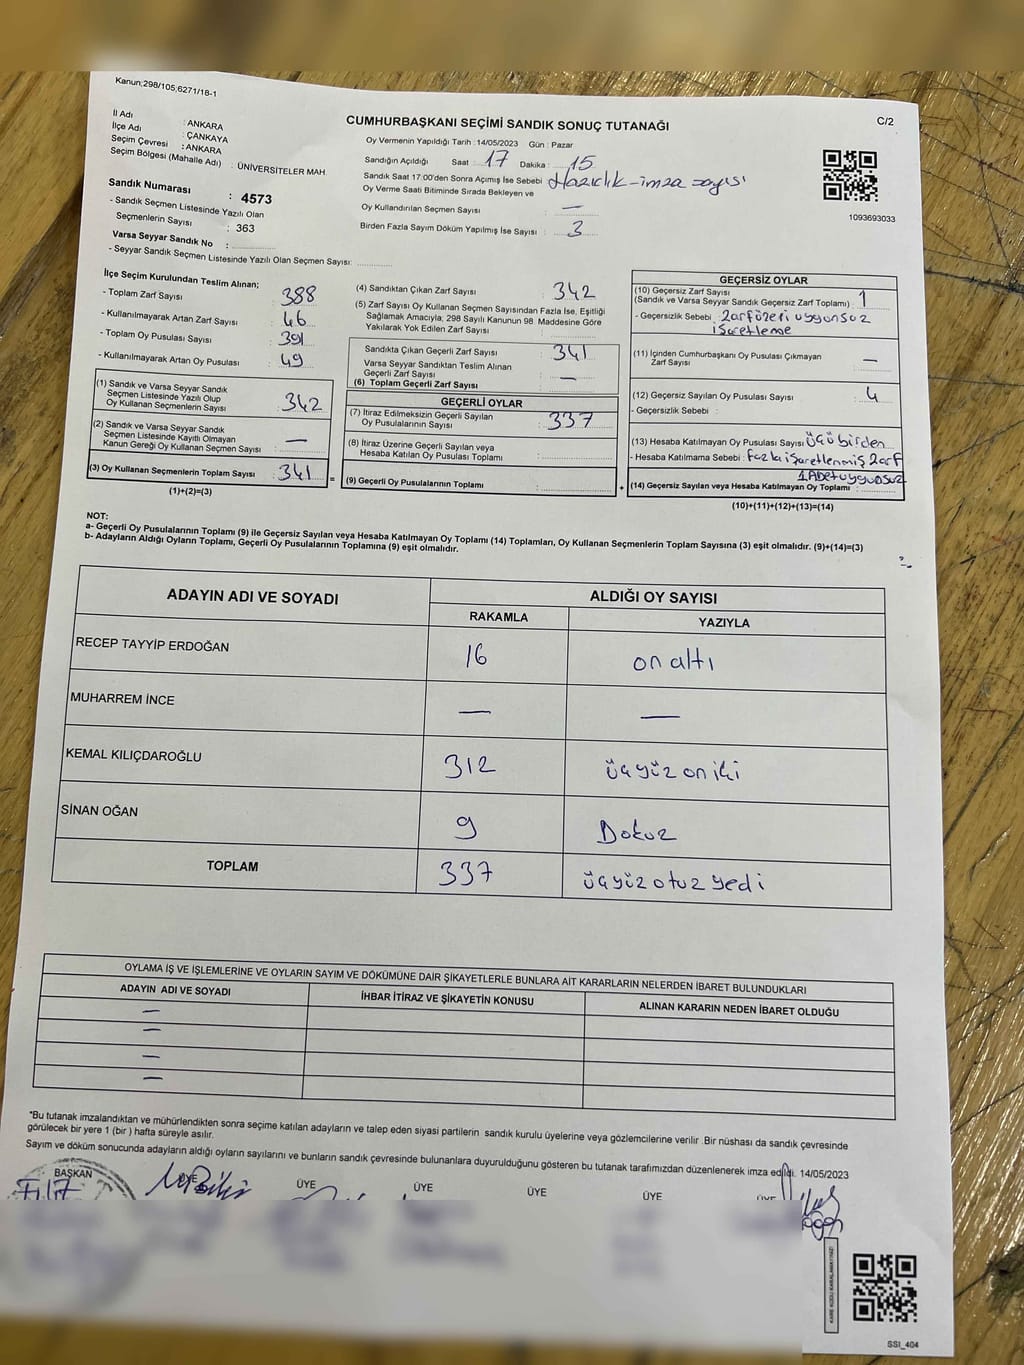 Kanun;298/105;6271/18-1
CUMHURBAŞKANI SEÇİMİ SANDIK SONUÇ TUTANAĞI
C/2
İl Adı : ANKARA
İlçe Adı : ÇANKAYA
Seçim Çevresi : ANKARA
Seçim Bölgesi (Mahalle Adı) : ÜNİVERSİTELER MAH.
Sandık Numarası : 4573
- Sandık Seçmen Listesinde Yazılı Olan
Seçmenlerin Sayısı : 363
Varsa Seyyar Sandık No :
- Seyyar Sandık Seçmen Listesinde Yazılı Olan Seçmen Sayısı:
Oy Vermenin Yapıldığı Tarih : 14/05/2023 Gün : Pazar
Sandığın Açıldığı Saat : 17 Dakika : 15
Sandık Saat 17:00'den Sonra Açımış İse Sebebi Hazırlık-imza sayısı
Oy Verme Saati Bitiminde Sırada Bekleyen ve
Oy Kullandırılan Seçmen Sayısı : —
Birden Fazla Sayım Döküm Yapılmış İse Sayısı : 3
1093693033
İlçe Seçim Kurulundan Teslim Alınan;
- Toplam Zarf Sayısı : 388
- Kullanılmayarak Artan Zarf Sayısı : 46
- Toplam Oy Pusulası Sayısı : 391
- Kullanılmayarak Artan Oy Pusulası : 49
(1) Sandık ve Varsa Seyyar Sandık
Seçmen Listesinde Yazılı Olup
Oy Kullanan Seçmenlerin Sayısı : 342
(2) Sandık ve Varsa Seyyar Sandık
Seçmen Listesinde Kayıtlı Olmayan
Kanun Gereği Oy Kullanan Seçmen Sayısı : —
(3) Oy Kullanan Seçmenlerin Toplam Sayısı : 341 =
(1)+(2)=(3)
(4) Sandıktan Çıkan Zarf Sayısı : 342
(5) Zarf Sayısı Oy Kullanan Seçmen Sayısından Fazla İse, Eşitliği
Sağlamak Amacıyla; 298 Sayılı Kanunun 98. Maddesine Göre
Yakılarak Yok Edilen Zarf Sayısı :
Sandıkta Çıkan Geçerli Zarf Sayısı : 341
Varsa Seyyar Sandıktan Teslim Alınan
Geçerli Zarf Sayısı : —
(6) Toplam Geçerli Zarf Sayısı
GEÇERLİ OYLAR
(7) İtiraz Edilmeksizin Geçerli Sayılan
Oy Pusulasının Sayısı : 337
(8) İtiraz Üzerine Geçerli Sayılan veya
Hesaba Katılan Oy Pusulası Toplamı :
(9) Geçerli Oy Pusulalarının Toplamı : +
GEÇERSİZ OYLAR
(10) Geçersiz Zarf Sayısı
(Sandık ve Varsa Seyyar Sandık Geçersiz Zarf Toplamı) : 1
- Geçersizlik Sebebi : Zarf üzeri uygunsuz
işaretleme
(11) İçinden Cumhurbaşkanı Oy Pusulası Çıkmayan
Zarf Sayısı : —
(12) Geçersiz Sayılan Oy Pusulası Sayısı : 4
- Geçersizlik Sebebi :
(13) Hesaba Katılmayan Oy Pusulası Sayısı : üçü birden
- Hesaba Katılmama Sebebi : fazla işaretlenmiş zarf
1 Adet uygunsuz
(14) Geçersiz Sayılan veya Hesaba Katılmayan Oy Toplamı :
(10)+(11)+(12)+(13)=(14)
NOT:
a- Geçerli Oy Pusulalarının Toplamı (9) ile Geçersiz Sayılan veya Hesaba Katılmayan Oy Toplamı (14) Toplamları, Oy Kullanan Seçmenlerin Toplam Sayısına (3) eşit olmalıdır. (9)+(14)=(3)
b- Adayların Aldığı Oyların Toplamı, Geçerli Oy Pusulalarının Toplamına (9) eşit olmalıdır.
ADAYIN ADI VE SOYADI ALDIĞI OY SAYISI
RAKAMLA YAZIYLA
RECEP TAYYİP ERDOĞAN 16 on altı
MUHARREM İNCE — —
KEMAL KILIÇDAROĞLU 312 üçyüz on iki
SİNAN OĞAN 9 Dokuz
TOPLAM 337 üçyüz otuz yedi
OYLAMA İŞ VE İŞLEMLERİNE VE OYLARIN SAYIM VE DÖKÜMÜNE DAİR ŞİKAYETLERLE BUNLARA AİT KARARLARIN NELERDEN İBARET BULUNDUKLARI
ADAYIN ADI VE SOYADI İHBAR İTİRAZ VE ŞİKAYETİN KONUSU ALINAN KARARIN NEDEN İBARET OLDUĞU
—
—
—
—
*Bu tutanak imzalandıktan ve mühürlendikten sonra seçime katılan adayların ve talep eden siyasi partilerin sandık kurulu üyelerine veya gözlemcilerine verilir. Bir nüshası da sandık çevresinde
görülecek bir yere 1 (bir ) hafta süreyle asılır.
Sayım ve döküm sonucunda adayların aldığı oyların sayılarını ve bunların sandık çevresinde bulunanlara duyurulduğunu gösteren bu tutanak tarafımızdan düzenlenerek imza edildi. 14/05/2023
BAŞKAN ÜYE ÜYE ÜYE ÜYE ÜYE ÜYE
KARE KODU KARALAMAYINIZ!
SSI_404